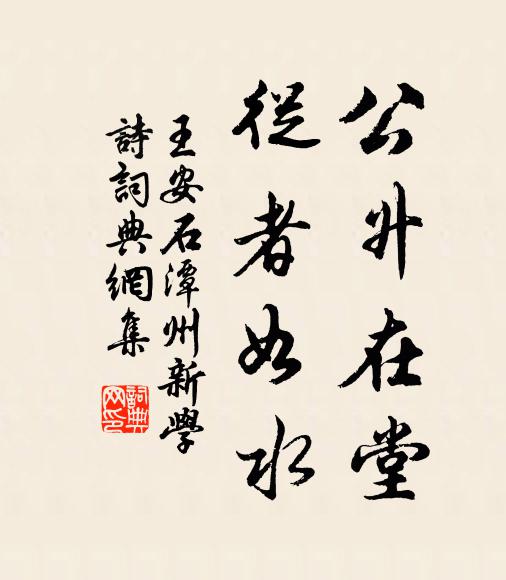 公升在堂
從者如水
王安石潭州新學
詩詞典網集
詞典
网印